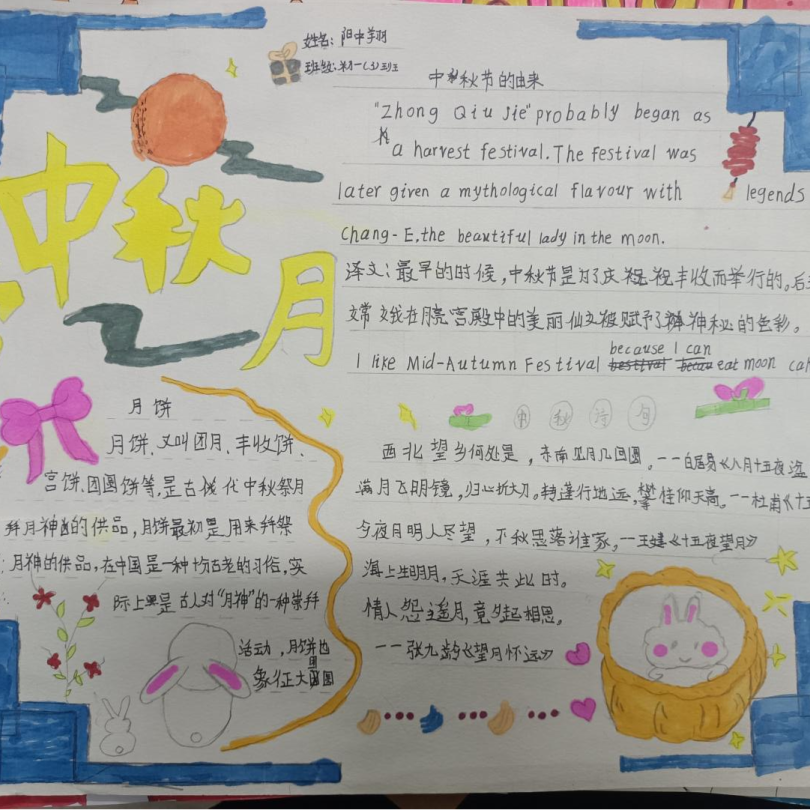 姓名:阳中翔
中秋月
中秋节的由来
"Zhong Qiu Jie" probably began as
a harvest festival. The festival was
later given a mythological flavour with legends
Chang-E, the beautiful lady in the moon.
译文:最早的时候,中秋节是为了庆祝丰收而举行的。后
嫦娥在月亮宫殿中的美丽仙女被赋予了神秘的色彩。
because I can
I like Mid-Autumn Festival eat moon
月饼
月饼、又叫团月、丰收饼、
宫饼、团圆饼等,是古代中秋祭月
拜月神的供品,月饼最初是用来拜祭
月神的供品,在中国是一种十分古老的习俗,实
际上是古人对"月神"的一种崇拜
活动,月饼也
象征大团圆
中秋诗句
西北望乡何处是,东南见月几回圆。——白居易《八月十五夜
满月飞明镜,归心折大刀。转蓬行地远,攀桂仰天高。——杜甫《十五
今夜月明人尽望,不知秋思落谁家。——王建《十五夜望月》
海上生明月,天涯共此时。
情人怨遥月,竟夕起相思。
——张九龄《望月怀远》